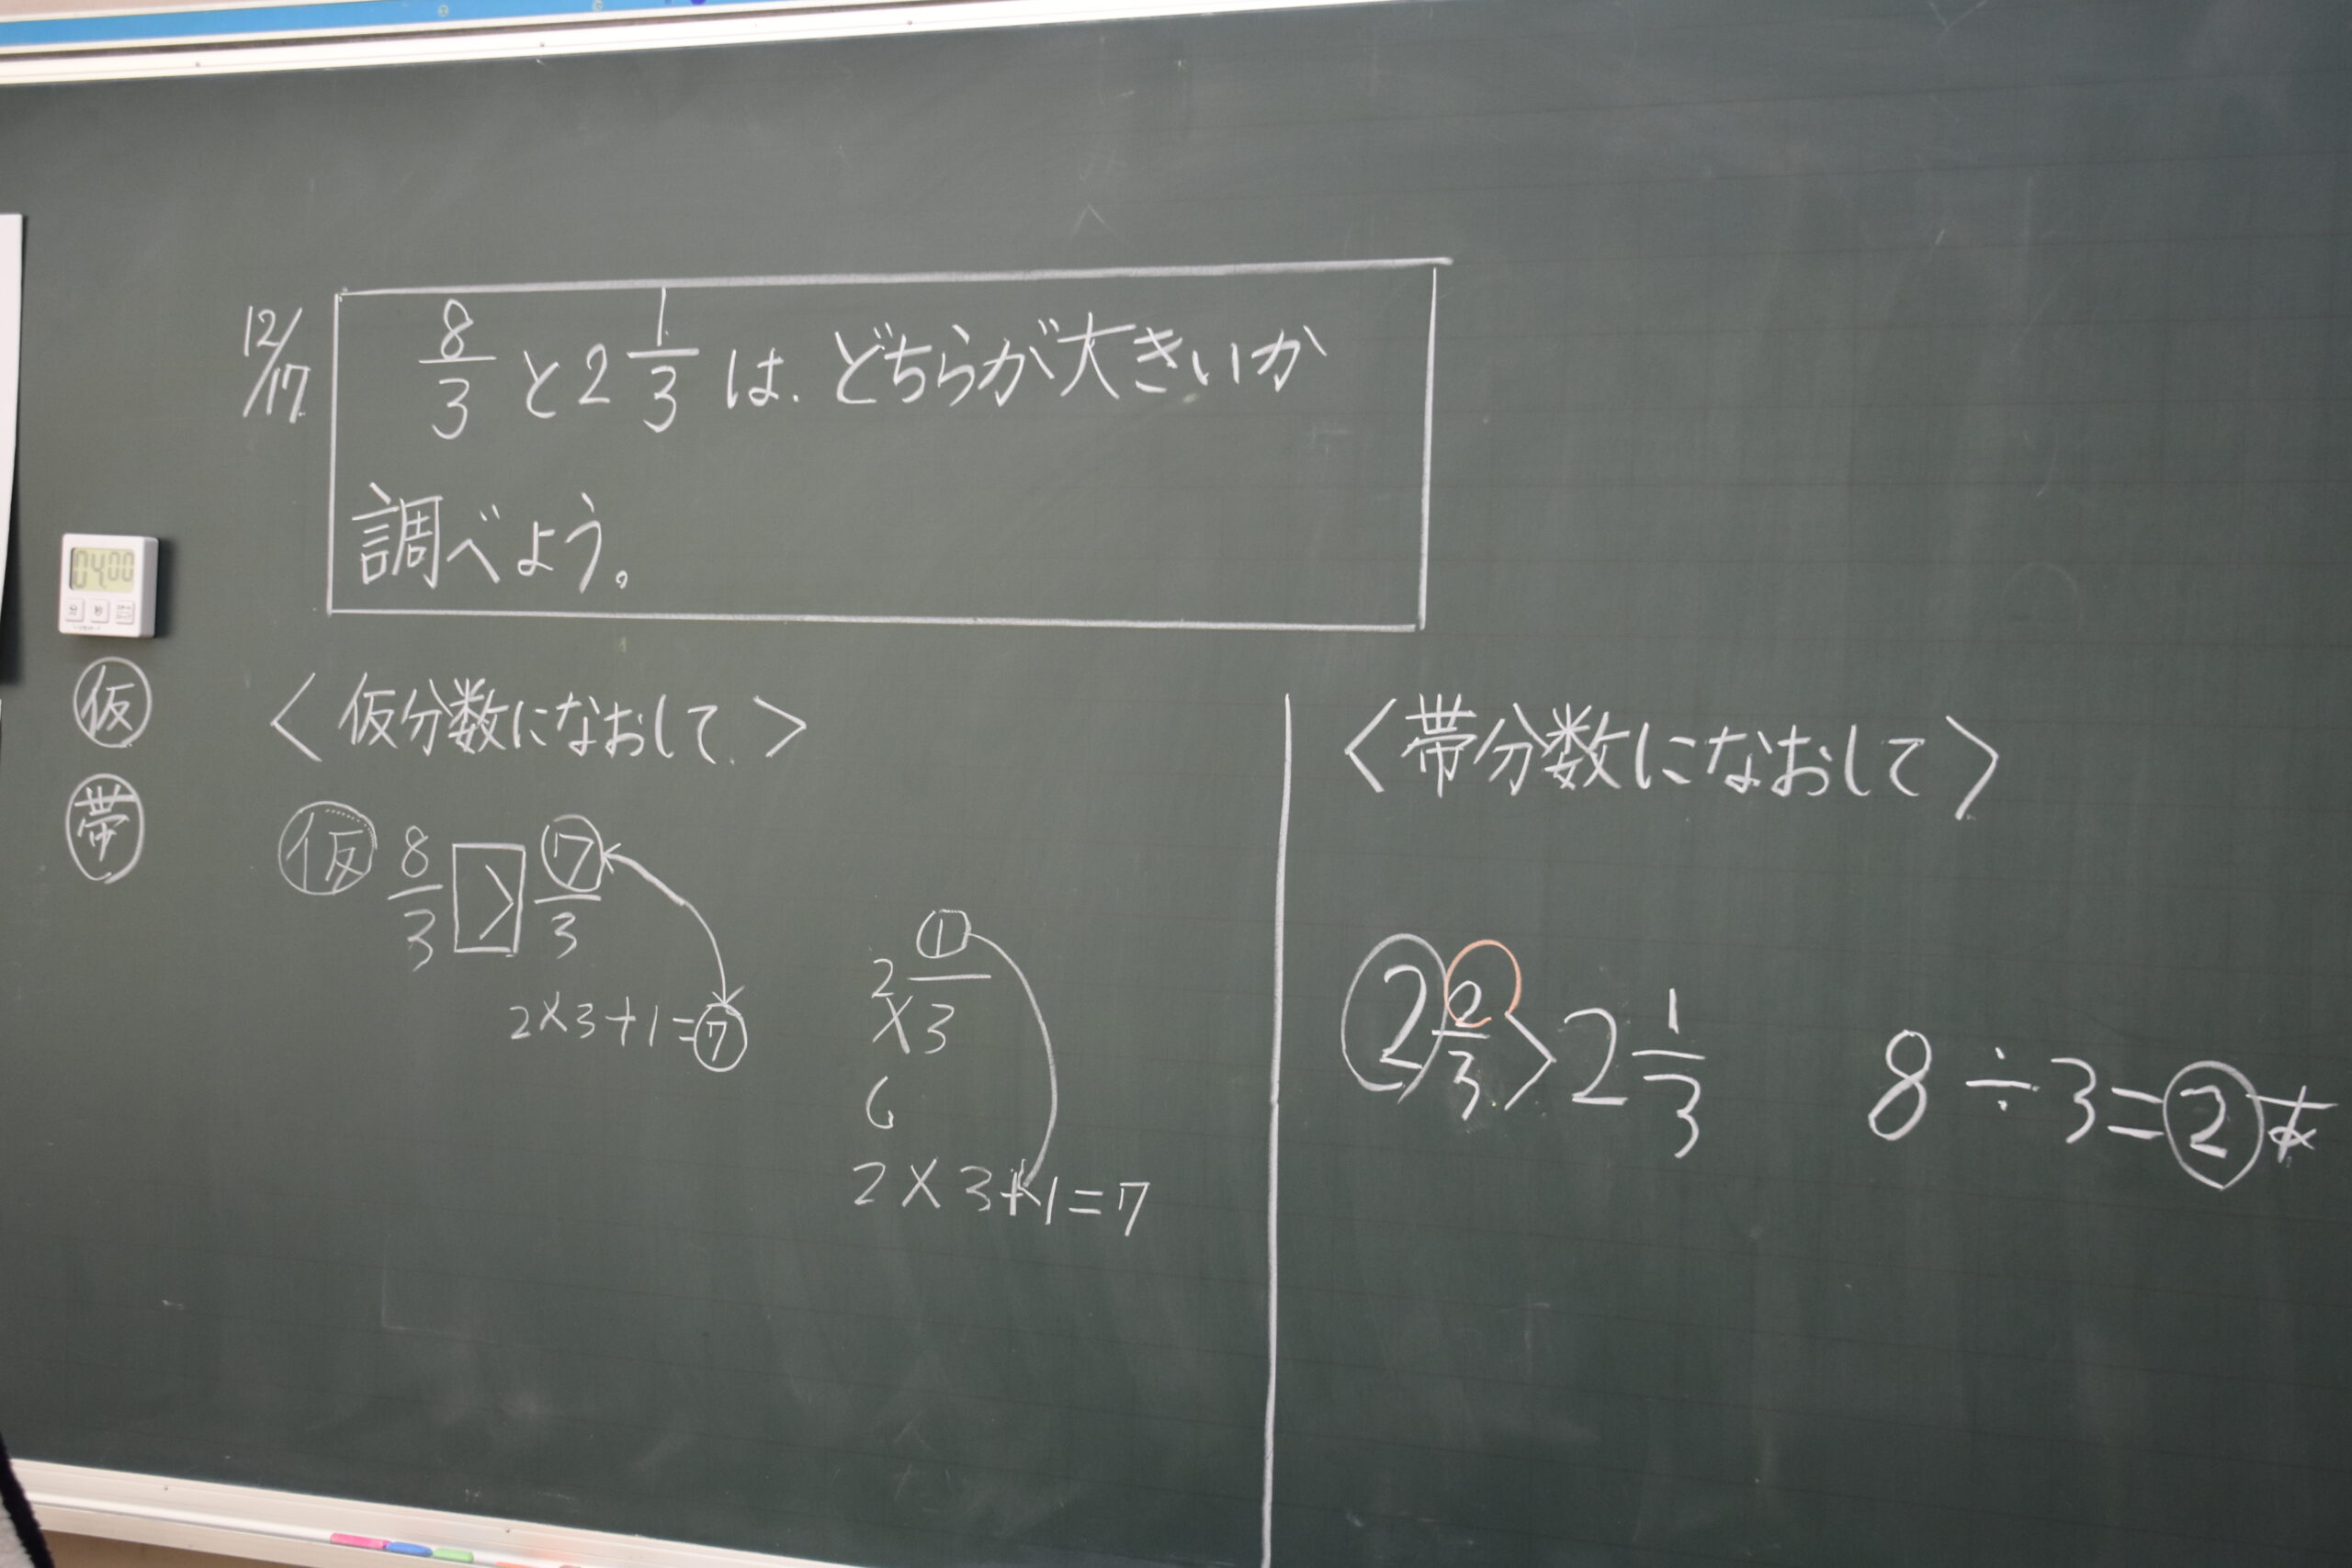 12/17
8/3と2 1/3は、どちらが大きいか
調べよう。
04:00
分 秒
仮
帯
<仮分数になおして>
仮 8/3 > 7/3
2×3+1=7
2 1/3
×
6
2×3+1=7
<帯分数になおして>
2 2/3 > 2 1/3
8÷3=2